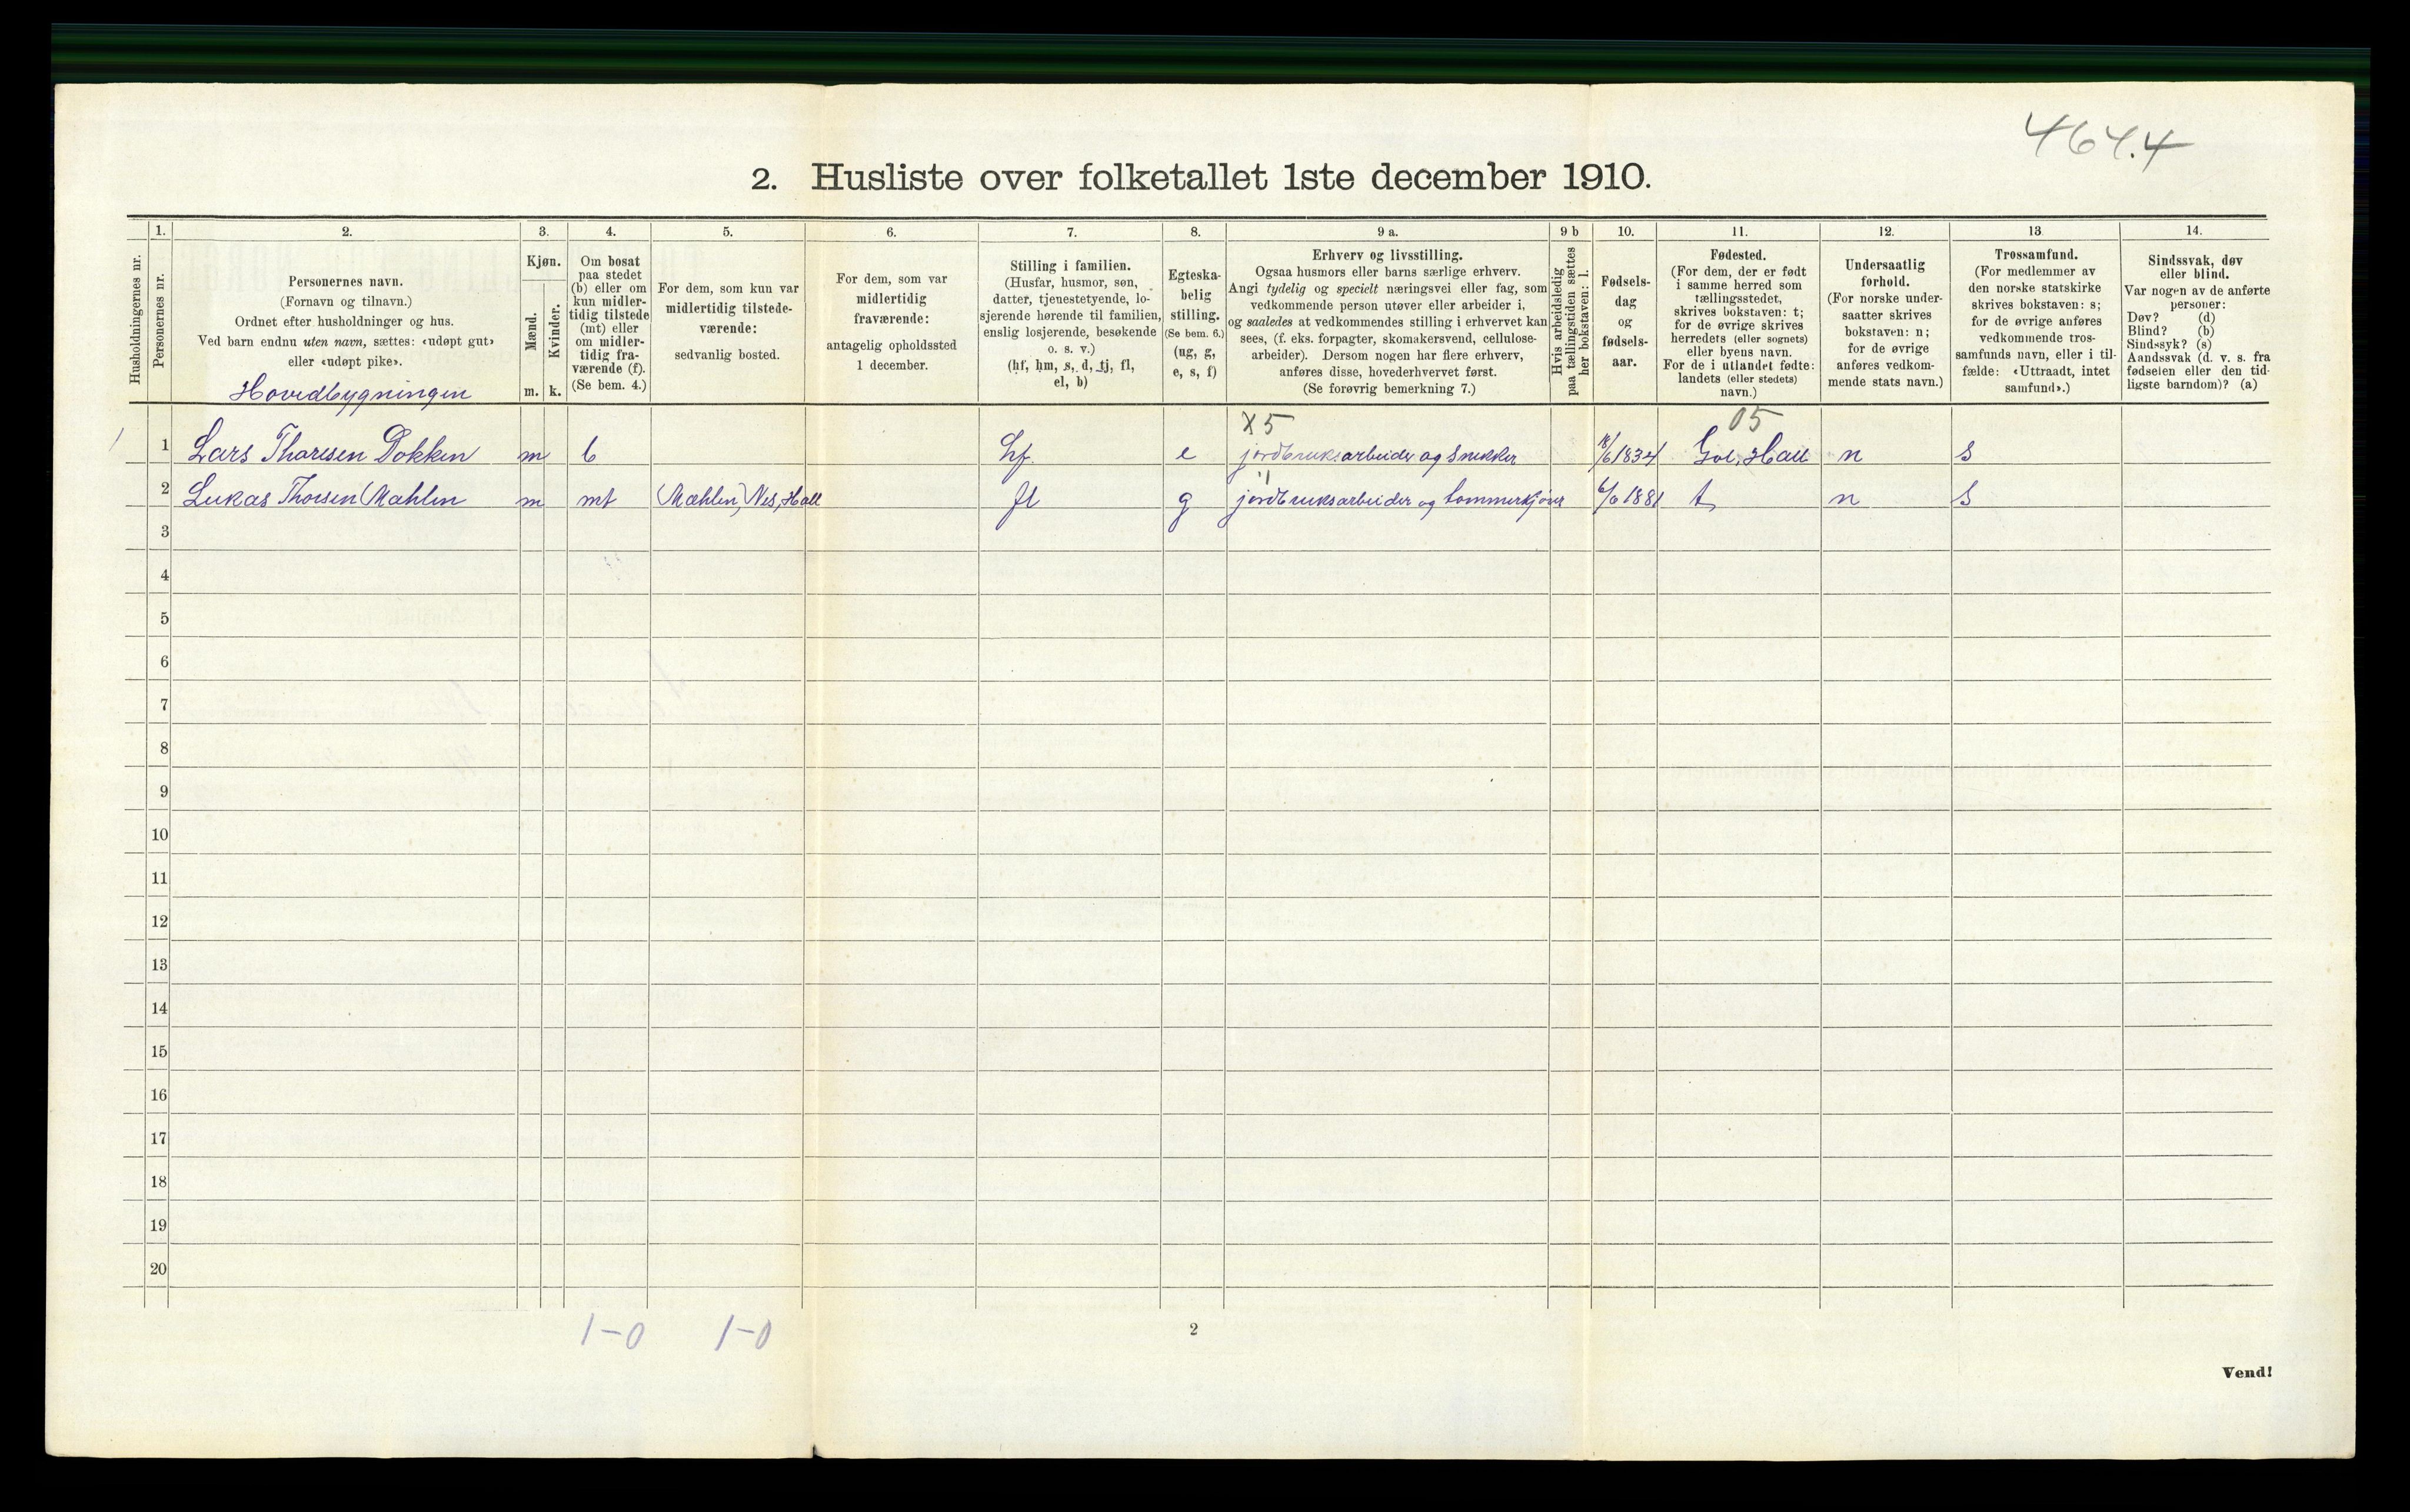 464.4
2. Husliste over folketallet 1ste december 1910.
Husholdningernes nr.
1.
Personernes nr.
2.
Personernes navn.
(Fornavn og tilnavn.)
Ordnet efter husholdninger og hus.
Ved barn endnu uten navn, sættes: «udøpt gut»
eller «udøpt pike».
Hovedbygningen
3.
Kjøn.
Mænd.
Kvinder.
m. k.
4.
Om bosat
paa stedet
(b) eller om
kun midler-
tidig tilstede
(mt) eller
om midler-
tidig fra-
værende (f).
(Se bem. 4.)
5.
For dem, som kun var
midlertidig tilstede-
værende:
sedvanlig bosted.
6.
For dem, som var
midlertidig
fraværende:
antagelig opholdssted
1 december.
7.
Stilling i familien.
(Husfar, husmor, søn,
datter, tjenestetyende, lo-
sjerende hørende til familien,
enslig losjerende, besøkende
o. s. v.)
(hf, hm, s, d, tj, fl,
el, b)
8.
Egteska-
belig
stilling.
(Se bem. 6.)
(ug, g,
e, s, f)
9 a.
Erhverv og livsstilling.
Ogsaa husmors eller barns særlige erhverv.
Angi tydelig og specielt næringsvei eller fag, som
vedkommende person utøver eller arbeider i,
og saaledes at vedkommendes stilling i erhvervet kan
sees, (f. eks. forpagter, skomakersvend, cellulose-
arbeider). Dersom nogen har flere erhverv,
anføres disse, hovederhvervet først.
(Se forøvrig bemerkning 7.)
9 b
Hvis arbeidsledig
paa tællingstiden sættes
her bokstaven: l.
10.
Fødsels-
dag
og
fødsels-
aar.
11.
Fødested.
(For dem, der er født
i samme herred som
tællingsstedet,
skrives bokstaven: t;
for de øvrige skrives
herredets (eller sognets)
eller byens navn.
For de i utlandet fødte:
landets (eller stedets)
navn.)
12.
Undersaatlig
forhold.
(For norske under-
saatter skrives
bokstaven: n;
for de øvrige
anføres vedkom-
mende stats navn.)
13
Trossamfund.
(For medlemmer av
den norske statskirke
skrives bokstaven: s;
for de øvrige anføres
vedkommende tros-
samfunds navn, eller i til-
fælde: «Uttraadt, intet
samfund».)
14.
Sindssvak, døv
eller blind.
Var nogen av de anførte
personer:
Døv? (d)
Blind? (b)
Sindssyk? (s)
Aandssvak (d. v. s. fra
fødselen eller den tid-
ligste barndom)? (a)
X5 05
1 1 Lars Thoresen Dokken m b hf e jordbruksarbeider og snekker 18/6 1834 Gol, Hall n s
2 Lukas Thorsen Mæhlen m mt (Mæhlen) Nes, Hall fl g jordbruksarbeider og tømmerkjører 6/6 1881 t n s
3
4
5
6
7
8
9
10
11
12
13
14
15
16
17
18
19
20
1-0 1-0
2
Vend!